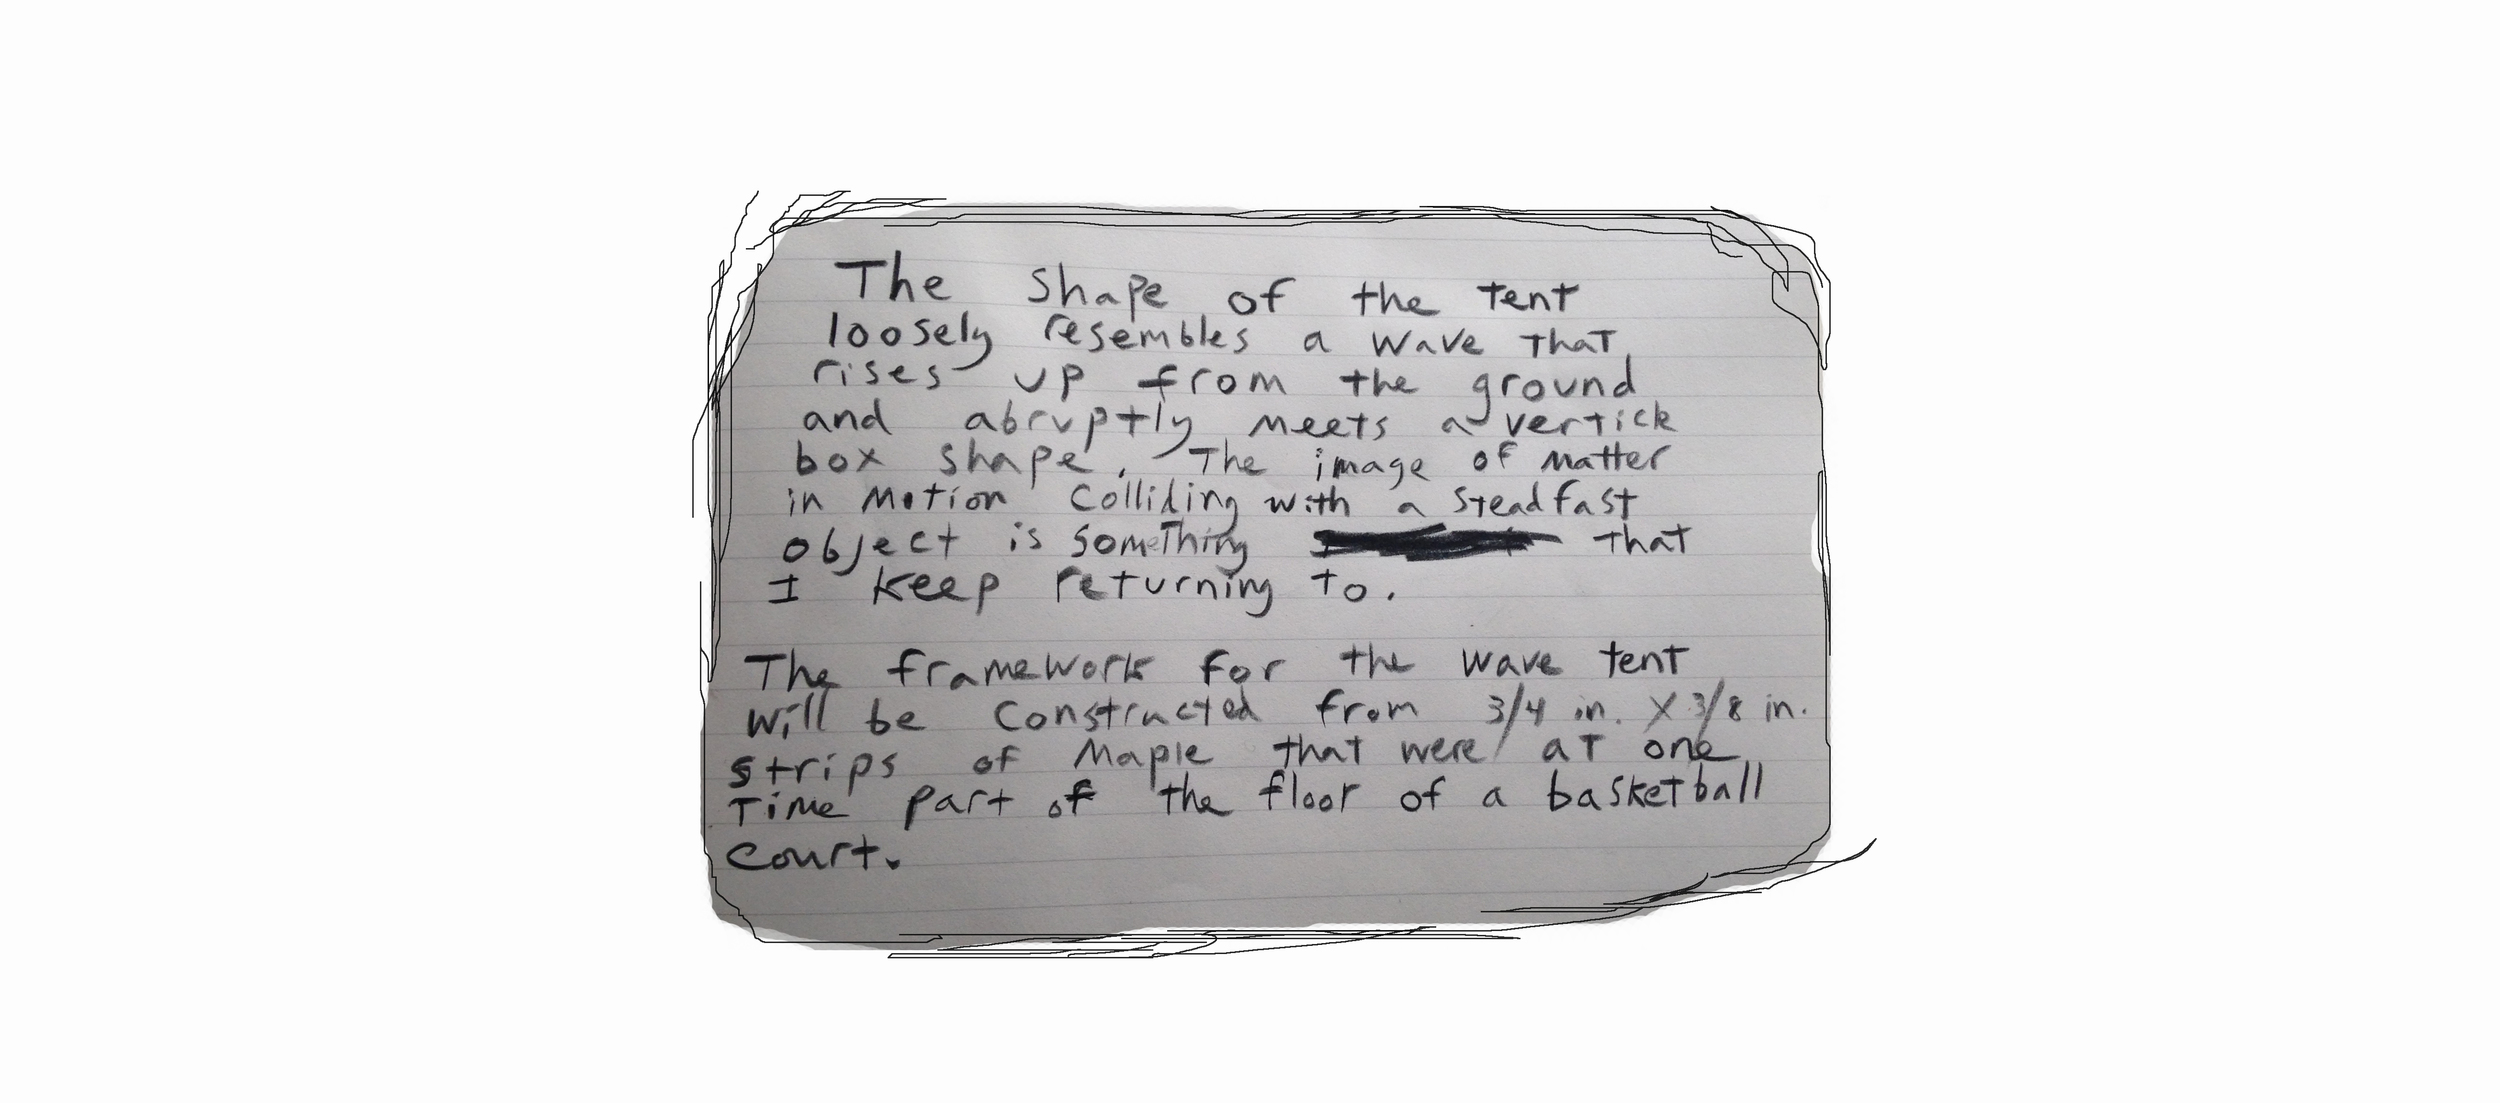 The shape of the tent
loosely resembles a wave that
rises up from the ground
and abruptly meets a vertick
box shape. The image of matter
in motion colliding with a steadfast
object is something that
I keep returning to.
The framework for the wave tent
will be constructed from 3/4 in. X 3/8 in.
strips of Maple that were at one
Time part of the floor of a basketball
court.